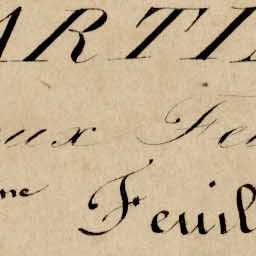 ARTI
ux Fe
me Feuil